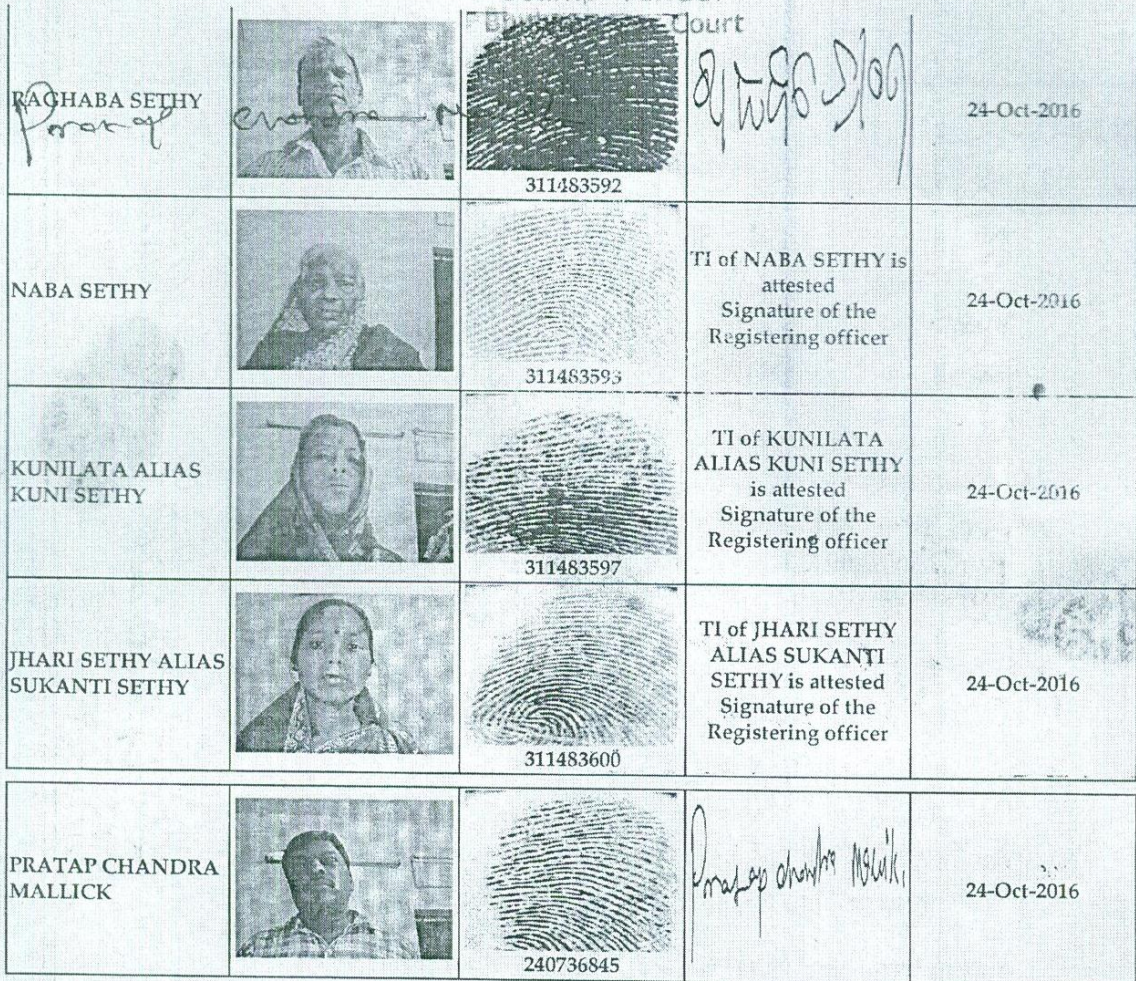 Court
RAGHABA SETHY
Pratap Chandra Mallick
311483592
ରାଘବ ସେଠୀ
24-Oct-2016
NABA SETHY
311483593
TI of NABA SETHY is
attested
Signature of the
Registering officer
24-Oct-2016
KUNILATA ALIAS
KUNI SETHY
311483597
TI of KUNILATA
ALIAS KUNI SETHY
is attested
Signature of the
Registering officer
24-Oct-2016
JHARI SETHY ALIAS
SUKANTI SETHY
311483600
TI of JHARI SETHY
ALIAS SUKANTI
SETHY is attested
Signature of the
Registering officer
24-Oct-2016
PRATAP CHANDRA
MALLICK
240736845
Pratap Chandra Mallick
24-Oct-2016